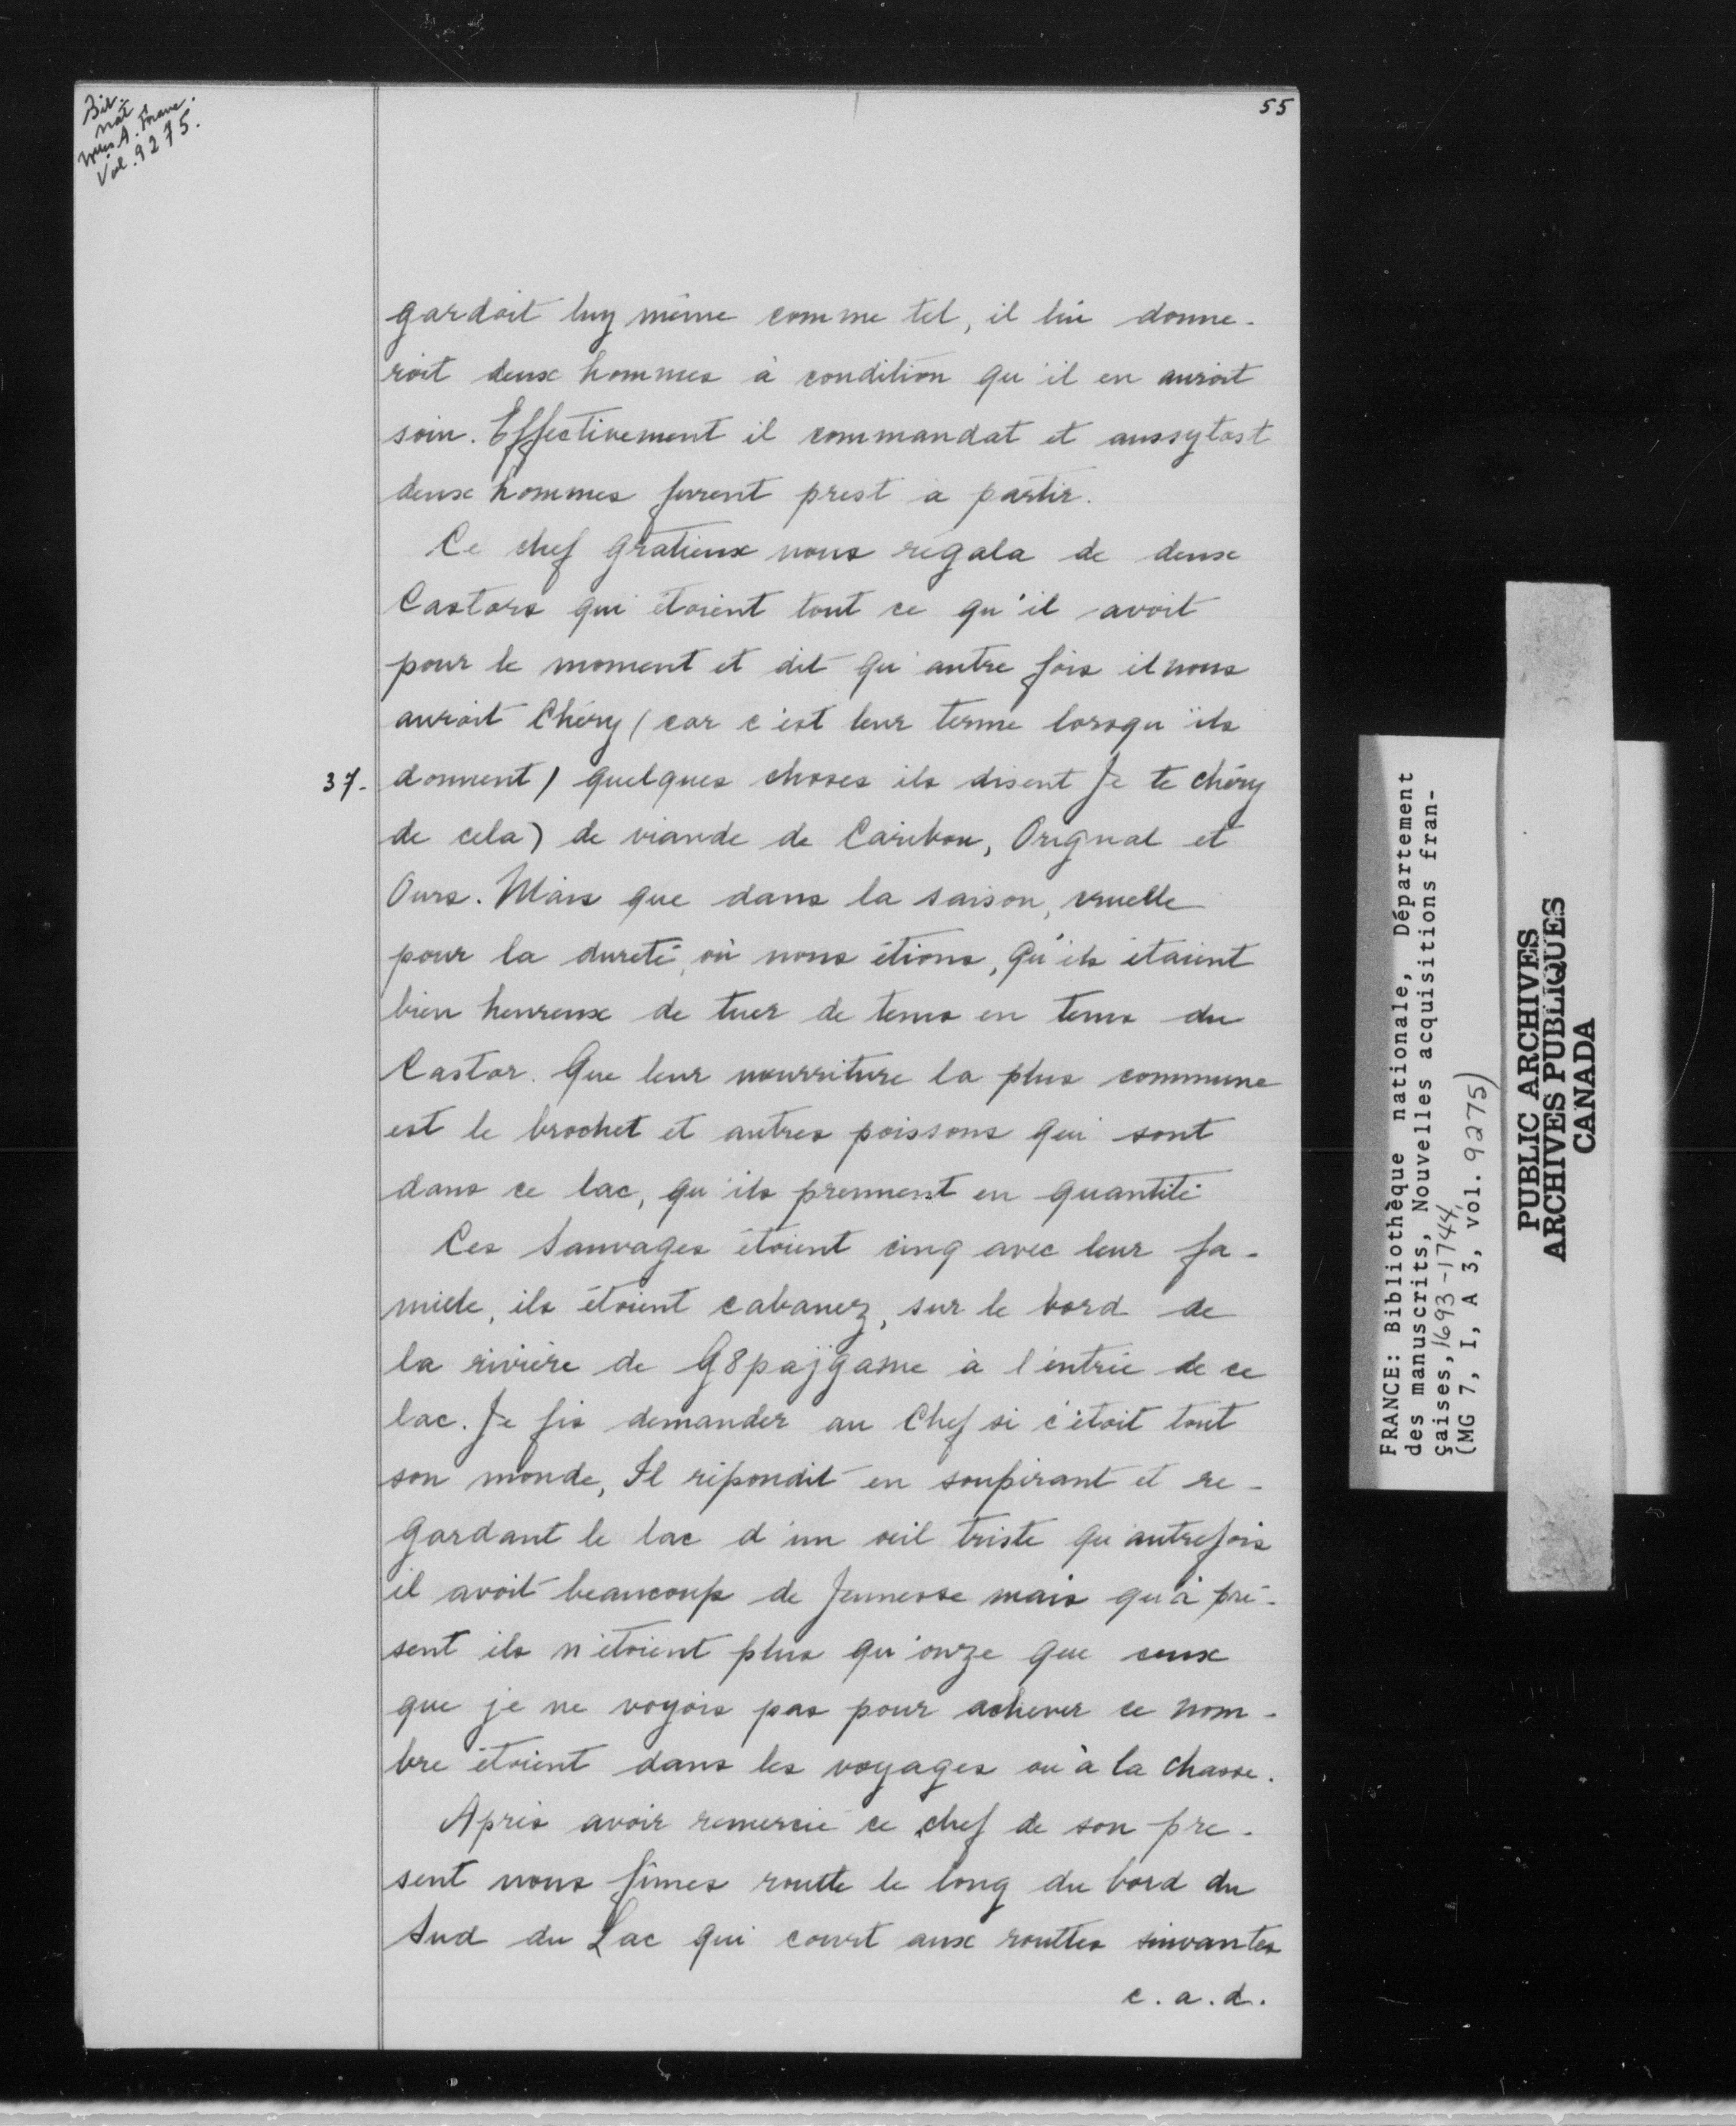 Bib.
nat.
Vol. 9275.
55
gardoit luy même comme tel, il lui donne-
roit deux hommes à condition qu'il en auroit
soin. Effectivement il commandat et aussytost
deux hommes furent prest a partir.
Ce chef gratieux nous régala de deux
Castors qui étoient tout ce qu'il avoit
pour le moment et dit qu'autre fois il nous
auroit Chéry (car c'est leur terme lorsqu'ils
37. donnent) quelques choses ils disent Je te chéry
de cela) de viande de Caribou, Orignal et
Ours. Mais que dans la saison, cruelle
pour la dureté, où nous étions, qu'ils étaient
bien heureux de tuer de tems en tems du
Castor. Que leur nourriture la plus commune
est le brochet et autres poissons qui sont
dans ce lac, qu'ils prennent en quantité
Ces Sauvages étoient cinq avec leur fa-
mille, ils étoient cabanez, sur le bord de
la rivière de G8pajgame à l'entrée de ce
lac. Je fis demander au Chef si c'étoit tout
son monde, Il répondit en soupirant et re-
gardant le lac d'un œil triste qu'autrefois
il avoit beaucoup de Jeunesse mais qu'à pré-
sent ils n'étoient plus qu'onze que ceux
que je ne voyois pas pour achever ce nom-
bre étoient dans les voyages ou à la chasse.
Après avoir remercié ce chef de son pre-
sent nous fîmes routte le long du bord du
Sud du Lac qui court aux routtes suivantes
c.a.d.
FRANCE: Bibliothèque nationale, Département
des manuscrits, Nouvelles acquisitions fran-
çaises, 1693-1744,
(MG 7, I, A 3, vol. 9275)
PUBLIC ARCHIVES
ARCHIVES PUBLIQUES
CANADA